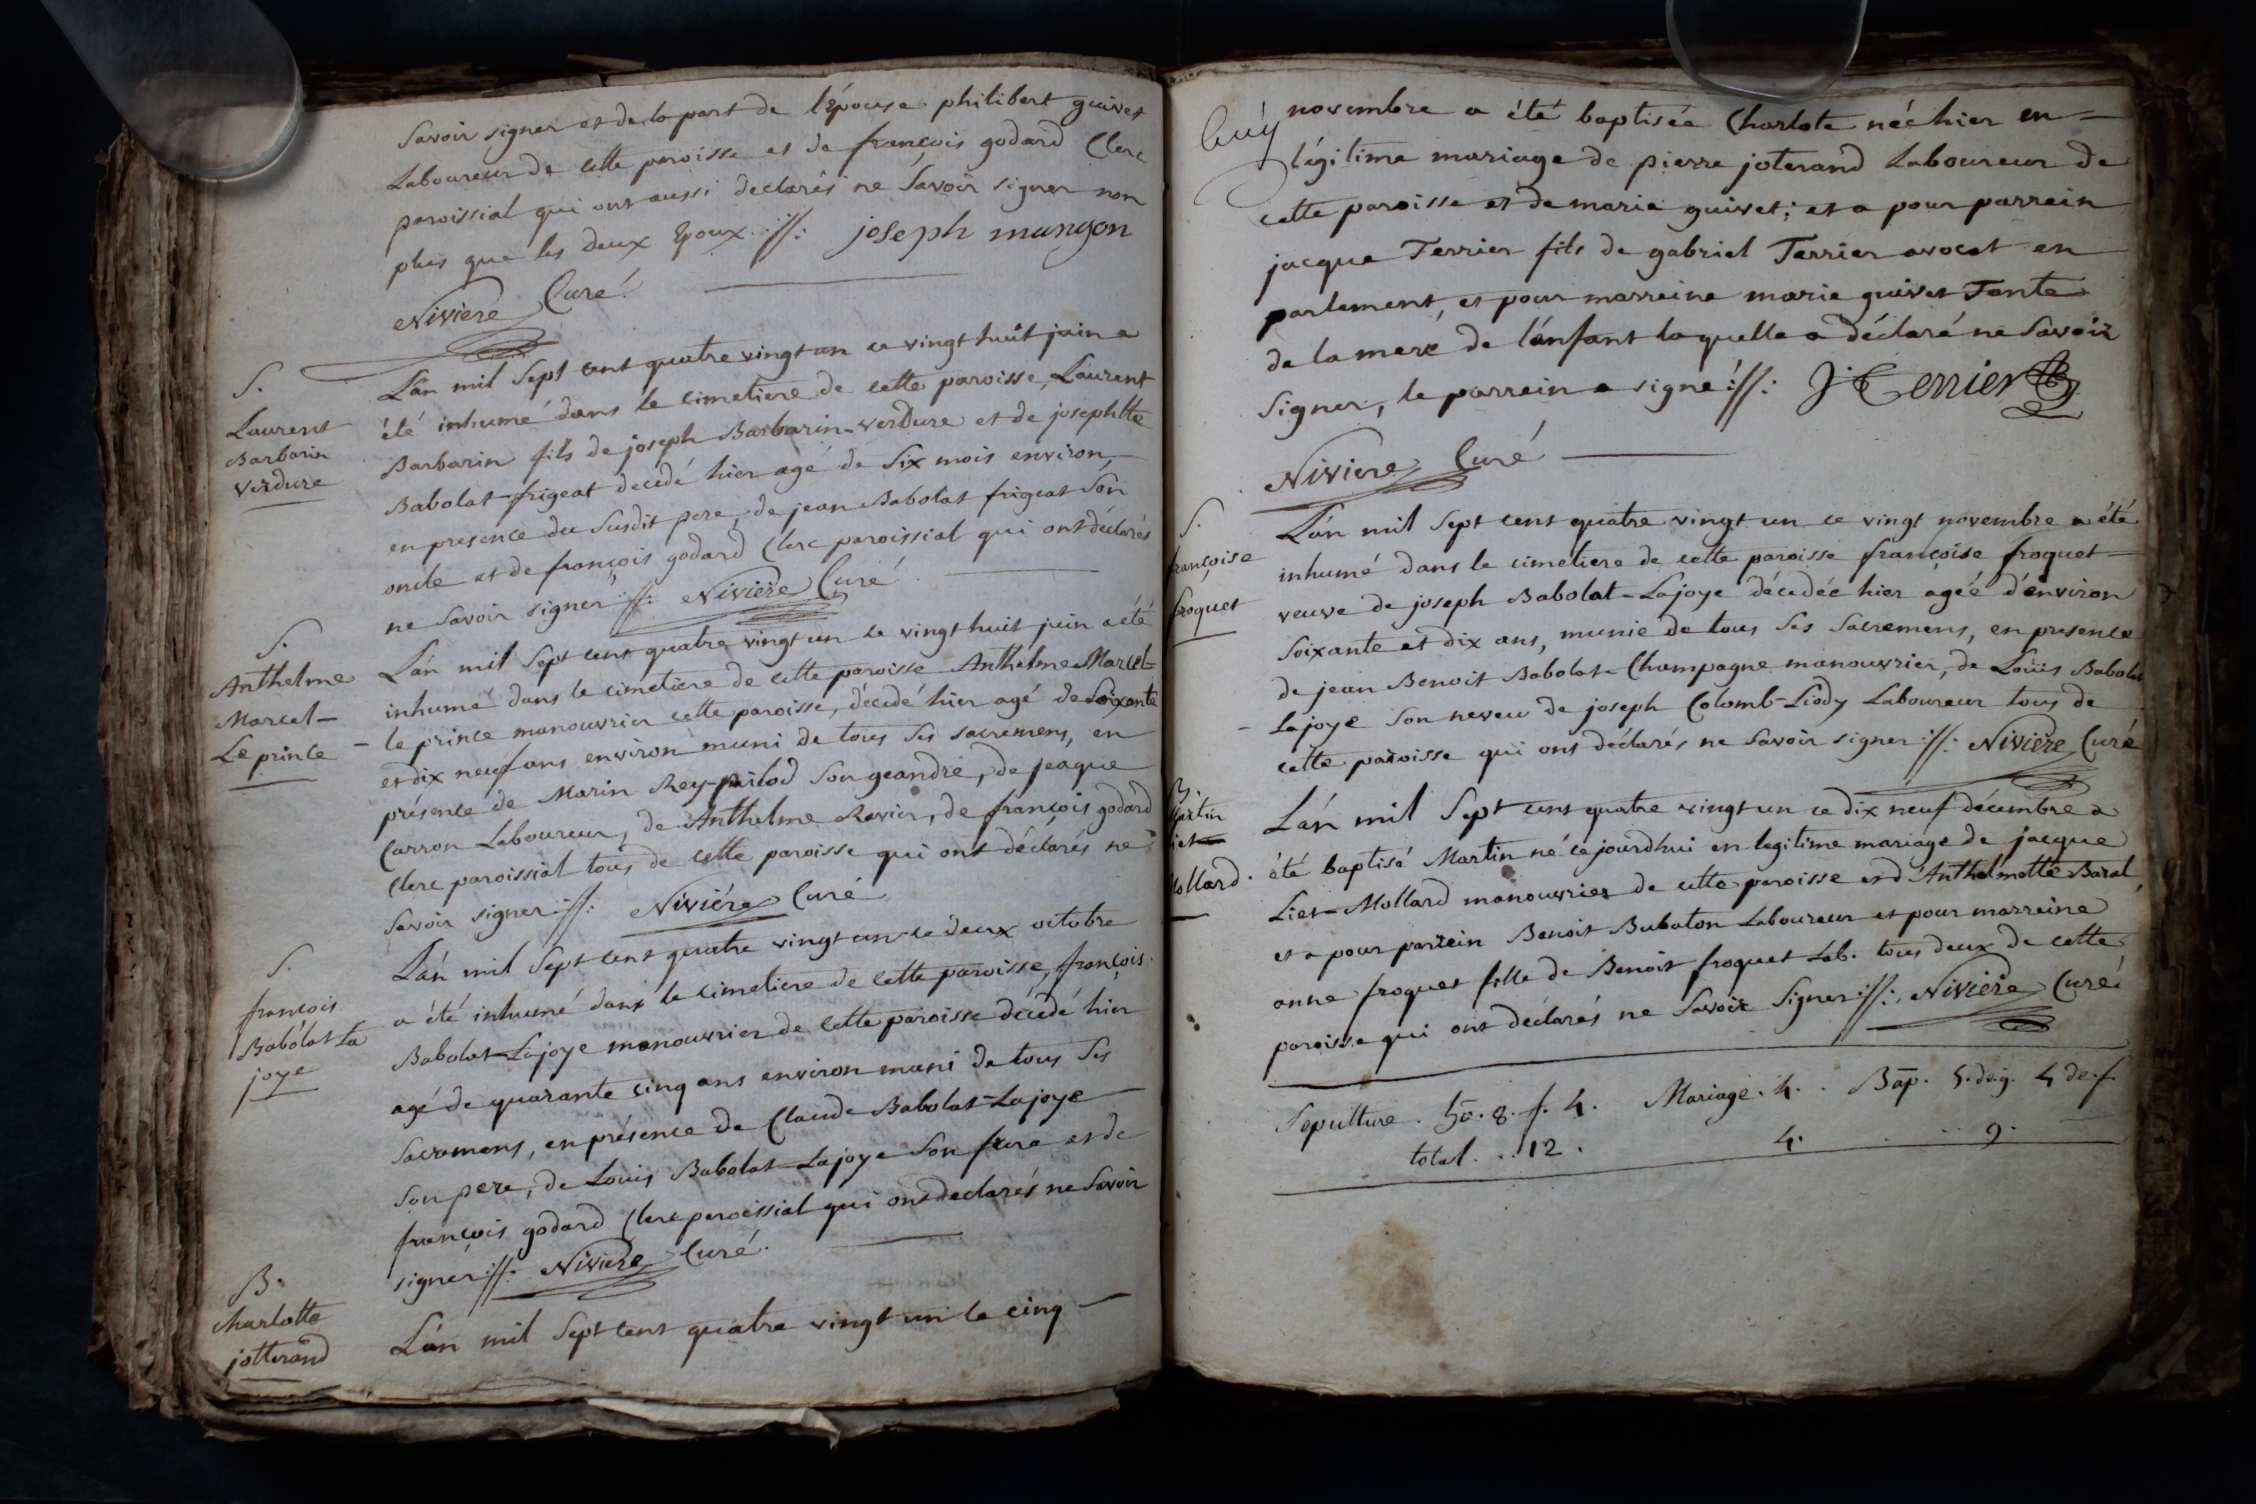 Savoir signer et de la part de l'Epouse philibert guivet
Laboureur de cette paroisse et de françois godard Clerc
paroissial qui ont aussi declarés ne Savoir signer non
plus que les deux Epoux ://: joseph mungon
Niviere Curé
S.
Laurent
Barbarin
verdure
L'an mil Sept cent quatre vingt un ce vingt huit juin a
été inhumé dans le cimetiere de cette paroisse, Laurent
Barbarin fils de joseph Barbarin-verdure et de josephtte
Babolat-frigeat decedé hier agé de Six mois environ,
en presence du Susdit pere, de jean Babolat frigeat Son
oncle et de françois godard Clerc paroissial qui ont déclarés
ne Savoir signer ://: Niviere Curé
S.
Anthelme
Marcel-
Le prince
L'an mil Sept cent quatre vingt un ce vingt huit juin a été
inhumé dans le cimetiere de cette paroisse Anthelme Marcel-
le prince manouvrier cette paroisse, décedé hier agé de Soixante
et dix neuf ans environ muni de tous ses sacremens, en
présence de Marin Rey-pailod Son geandre, de jeaque
Carron Laboureur, de Anthelme Ravier, de françois godard
Clerc paroissial tous de cette paroisse qui ont déclarés ne
Savoir signer ://: Niviere Curé
S.
françois
Babolat La
joye
L'an mil Sept cent quatre vingt un ce deux octobre
a été inhumé dans le cimetiere de cette paroisse, françois
Babolat-Lajoye manouvrier de cette paroisse décedé hier
agé de quarante cinq ans environ muni de tous Ses
Sacremens, en présence de Claude Babolat-Lajoye
Son pere, de Louis Babolat-Lajoye Son frere et de
françois godard Clerc paroissial qui ont declarés ne Savoir
signer ://: Niviere Curé.
B.
Charlotte
jotterand
L'an mil Sept cent quatre vingt un le cinq
novembre a été baptisée Charlote née hier en
légitime mariage de pierre joterand Laboureur de
cette paroisse et de marie guivet; et a pour parrein
jacque Terrier fils de gabriel Terrier avocat en
parlement, et pour marreine marie guivet Tante
de la mere de l'enfant laquelle a déclaré ne Savoir
Signer, le parrein a signé ://: J: Terrier
Niviere Curé
S.
françoise
froquet
L'an mil Sept cent quatre vingt un ce vingt novembre a été
inhumé dans le cimetiere de cette paroisse françoise froquet
veuve de joseph Babolat-Lajoye décedée hier agéé d'environ
Soixante et dix ans, munie de tous Ses Sacremens, en presence
de jean Benoit Babolat-Champagne manouvrier, de Louis Babolat
Lajoye Son neveu de joseph Colomb-Liody Laboureur tous de
cette paroisse qui ont déclarés ne Savoir signer ://: Niviere Curé
B.
Martin
Liet
Mollard.
L'an mil Sept cent quatre vingt un ce dix neuf décembre a
été baptisé Martin né cejourdhui en legitime mariage de jacque
Liet-Mollard manouvrier de cette paroisse et d'Anthelmette Baral,
et a pour parrein Benoit Bubaton Laboureur et pour marreine
anne froquet fille de Benoit froquet Lab. tous deux de cette
paroisse qui ont déclarés ne Savoir Signer ://: Niviere Curé
Sepulture. ho. 8. f. 4. Mariage. 4. Bap. 5. de g. 4 de f.
total. .. 12. 4. 9.